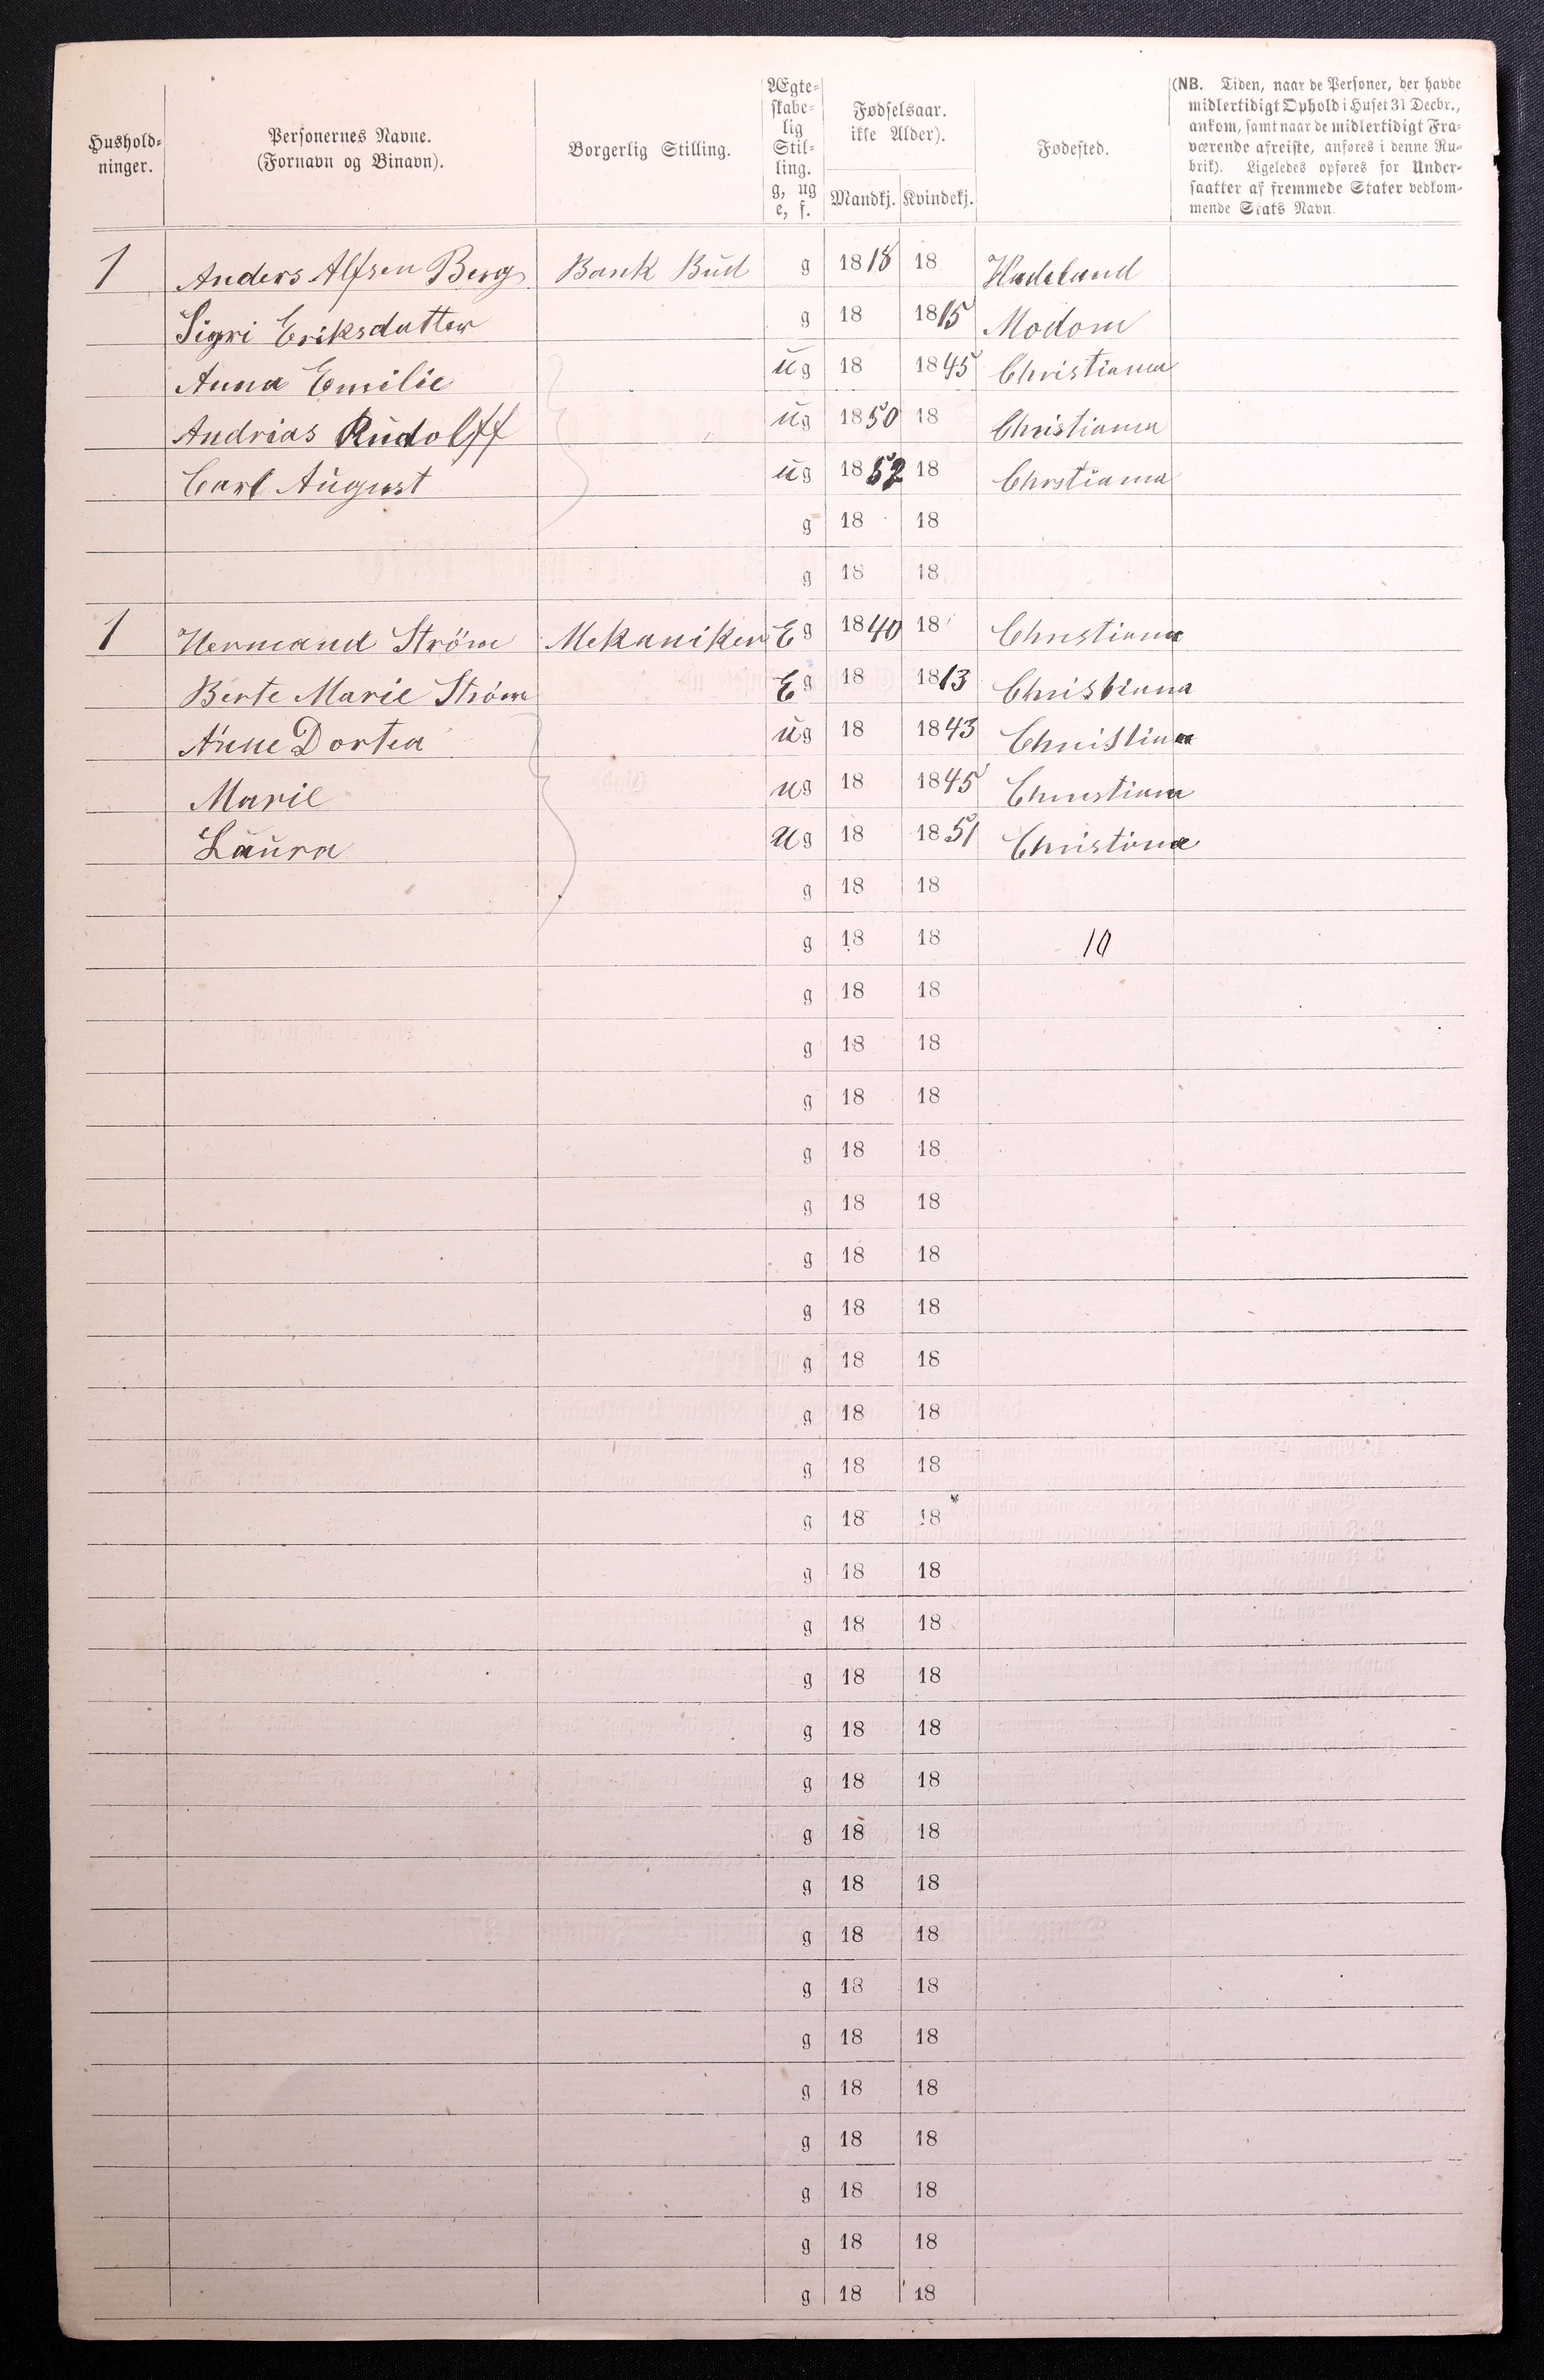 Hushold-
ninger.
Personernes Navne.
(Fornavn og Binavn).
Borgerlig Stilling.
Ægte-
skabe-
lig
Stil-
ling.
g, ug
e, f.
Fødselsaar.
ikke Alder).
Mandkj. Kvindekj.
Fødested.
(NB. Tiden, naar de Personer, der havde
midlertidigt Ophold i Huset 31 Decbr.,
ankom, samt naar de midlertidigt Fra-
værende afreiste, anføres i denne Ru-
brik). Ligeledes opføres for Under-
saatter af fremmede Stater vedkom-
mende Stats Navn.
1 Anders Alfsen Berg Bank Bud g 1818 18 Hadeland
Sigri Eriksdatter g 18 1815 Modom
Anna Emilie ug 18 1845 Christiania
Andrias Rudolff ug 1850 18 Christiania
Carl August ug 1852 18 Chrstiania
g 18 18
g 18 18
1 Hermand Ström Mekaniker E g 1840 18 Christiana
Berte Marie Ström E g 18 1813 Christiana
Anne Dortea ug 18 1843 Christiana
Marie ug 18 1845 Christiana
Laura ug 18 1851 Christina
g 18 18
g 18 18 10
g 18 18
g 18 18
g 18 18
g 18 18
g 18 18
g 18 18
g 18 18
g 18 18
g 18 18
g 18 18
g 18 18
g 18 18
g 18 18
g 18 18
g 18 18
g 18 18
g 18 18
g 18 18
g 18 18
g 18 18
g 18 18
g 18 18
g 18 18
g 18 18
g 18 18
g 18 18